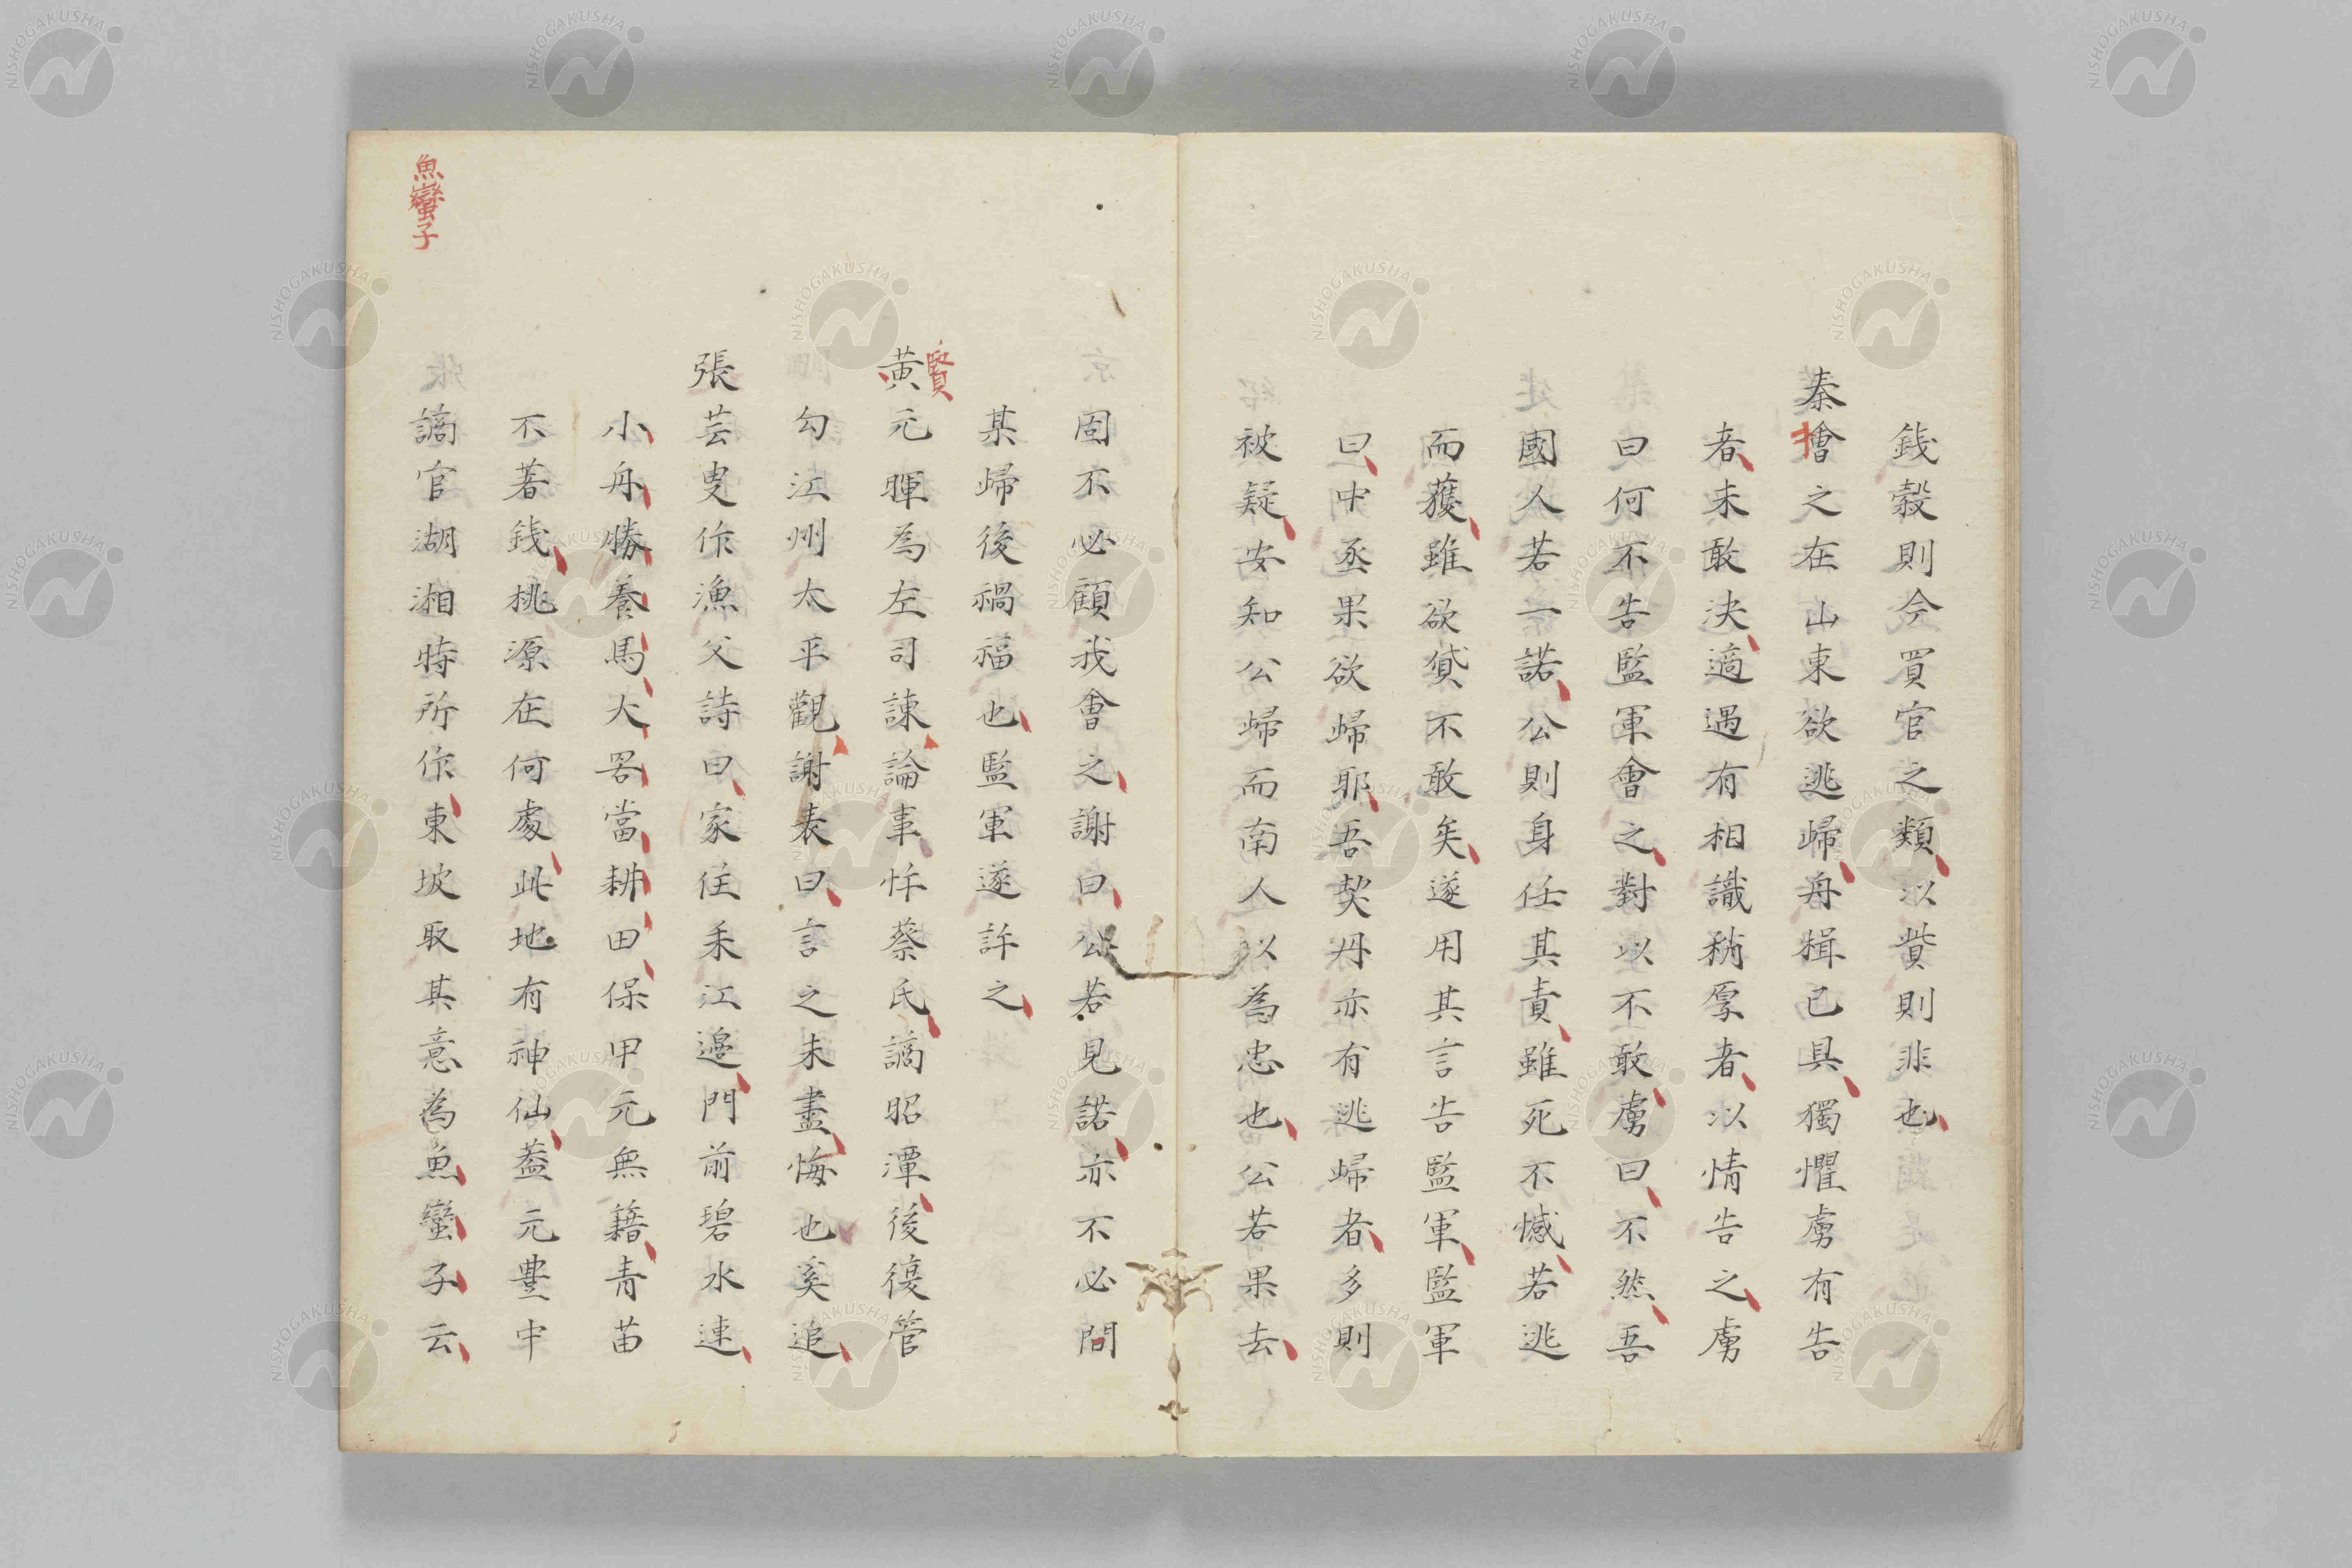 錢穀則今買官之類以貲則非也
秦檜之在山東欲逃歸舟楫已具獨懼虜有告
者未敢決適遇有相識稍厚者以情告之虜
曰何不告監軍會之對以不敢虜曰不然吾
國人若一諾公則身任其責雖死不憾若逃
而獲雖欲貸不敢矣遂用其言告監軍監軍
曰中丞果欲歸耶吾契丹亦有逃歸者多則
被疑安知公歸而南人以為忠也公若果去
固不必顧我會之謝曰公若見諾亦不必問
某歸後禍福也監軍遂許之
賢
黄元暉為左司諫論事忤蔡氏謫昭潭後復管
勾江州太平觀謝表曰言之未盡悔也奚追
張芸叟作漁父詩曰家住耒江邉門前碧水連
小舟勝養馬大罟當耕田保甲元無籍青苗
不著錢桃源在何處此地有神仙蓋元豐中
謫官湖湘時所作東坡取其意為魚蠻子云
魚蠻子
NISHOGAKUSHA